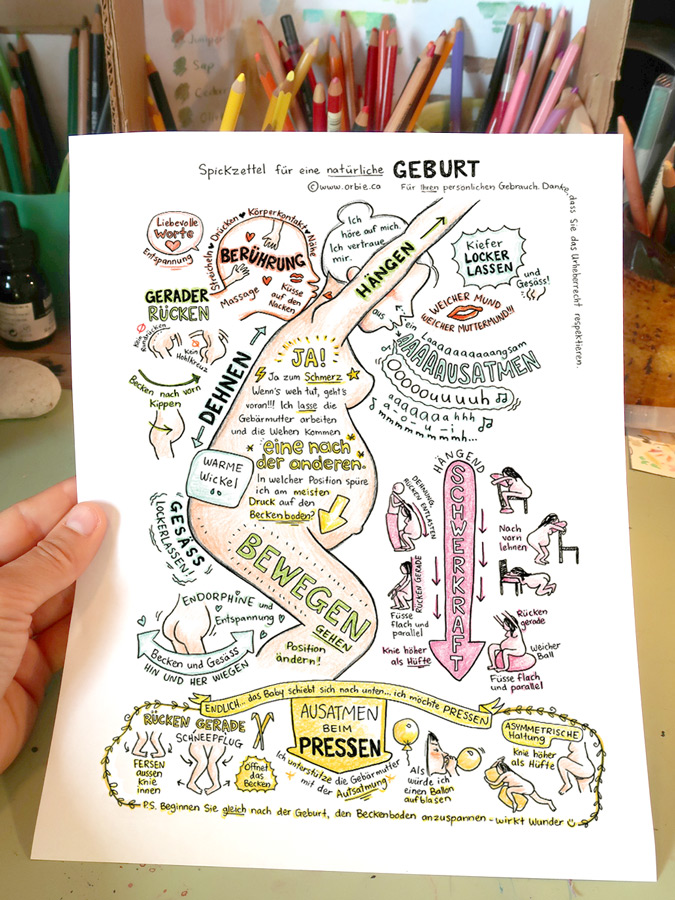 Spickzettel für eine natürliche GEBURT
©www.orbie.ca
Für Ihren persönlichen Gebrauch. Danke,
dass Sie das Urheberrecht respektieren.
Liebevolle
Worte
Entspannung
Streicheln ♥ Drücken ♥ Körperkontakt ♥ Nähe
BERÜHRUNG
Massage
Küsse
auf den
Nacken
Ich
höre auf mich.
Ich vertraue
mir.
HÄNGEN
Kiefer
LOCKER
LASSEN
und
Gesäss!
WEICHER MUND
WEICHER MUTTERMUND!!!
GERADER
RÜCKEN
Kein
Rundrücken
Kein
Hohlkreuz
Becken nach vorn
Kippen
DEHNEN
aus
ein
Laaaaaaaaaaangsam
AAAAAUSATMEN
OOOOOuuuuh
aaaaaaahhh
a-o-u-i
mmmmmmmmhm...
JA!
Ja zum Schmerz
Wenn's weh tut, geht's
voran!!! Ich lasse die
Gebärmutter arbeiten
und die Wehen kommen
eine nach
der anderen.
In welcher Position spüre
ich am meisten
Druck auf den
Beckenboden?
WARME
Wickel
GESÄSS
LOCKERLASSEN!
ENDORPHINE und
Entspannung
Becken und Gesäss
HIN UND HER WIEGEN
BEWEGEN
GEHEN
Position
ändern!
HÄNGEND
SCHWERKRAFT
DEHNUNG,
RÜCKEN ENTLASTEN
RÜCKEN GERADE
Füsse
flach und
parallel
Knie höher
als Hüfte
Nach
vorn
lehnen
Rücken
gerade
Weicher
Ball
Füsse flach
und parallel
ENDLICH... das Baby schiebt sich nach unten... ich möchte PRESSEN
RÜCKEN GERADE
SCHNEEPFLUG
FERSEN
aussen
Knie
innen
Öffnet
das
Becken
AUSATMEN
BEIM
PRESSEN
Ich unterstütze die Gebärmutter
mit der Ausatmung
Als
würde ich
einen Ballon
aufblasen
ASYMMETRISCHE
Haltung
Knie höher
als Hüfte
P.S. Beginnen Sie gleich nach der Geburt, den Beckenboden anzuspannen - wirkt Wunder